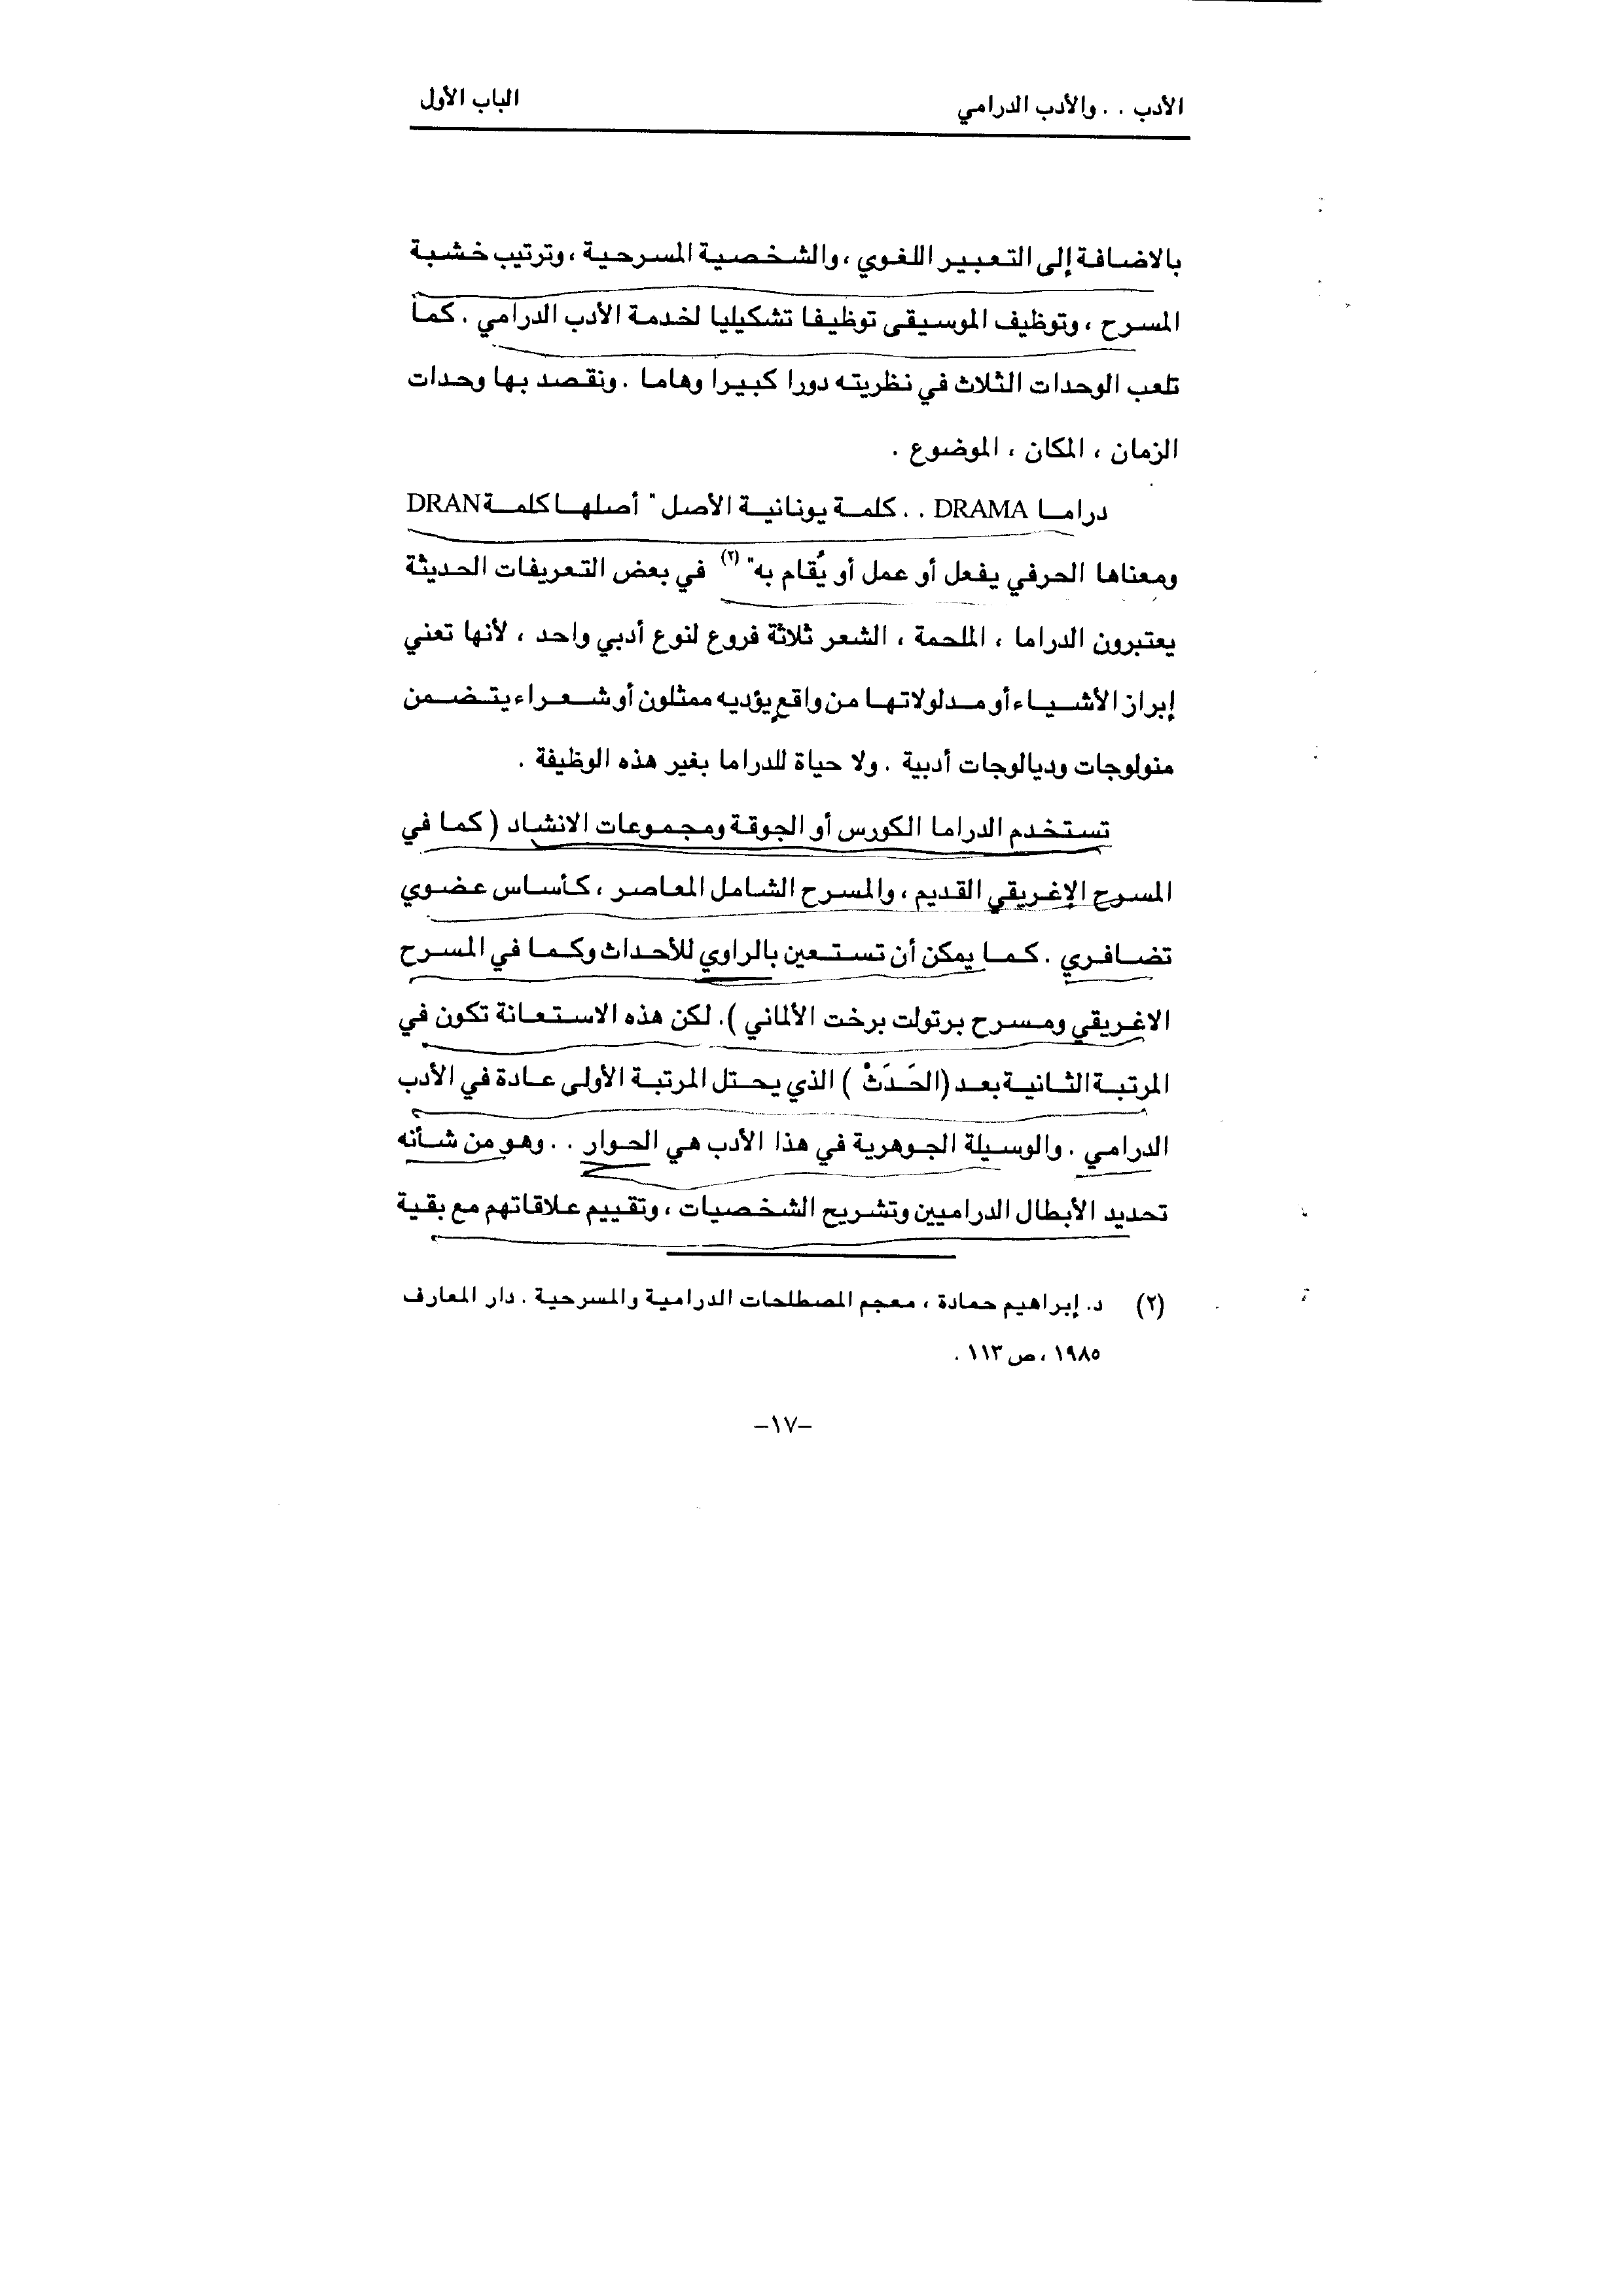 الأدب . . والأدب الدرامي الباب الأول
بالاضافة إلى التعبير اللغوي ، والشخصية المسرحية ، وترتيب خشبة
المسرح ، وتوظيف الموسيقى توظيفا تشكيليا لخدمة الأدب الدرامي . كما
تلعب الوحدات الثلاث في نظريته دورا كبيرا وهاما . ونقصد بها وحدات
الزمان ، المكان ، الموضوع .
دراما DRAMA . . كلمة يونانية الأصل " أصلها كلمة DRAN
ومعناها الحرفي يفعل أو عمل أو يُقام به" (٢) في بعض التعريفات الحديثة
يعتبرون الدراما ، الملحمة ، الشعر ثلاثة فروع لنوع أدبي واحد ، لأنها تعني
إبراز الأشياء أو مدلولاتها من واقع يؤديه ممثلون أو شعراء يتضمن
منولوجات وديالوجات أدبية . ولا حياة للدراما بغير هذه الوظيفة .
تستخدم الدراما الكورس أو الجوقة ومجموعات الانشاد ( كما في
المسرح الإغريقي القديم ، والمسرح الشامل المعاصر ، كأساس عضوي
تضافري . كما يمكن أن تستعين بالراوي للأحداث وكما في المسرح
الاغريقي ومسرح برتولت برخت الألماني ). لكن هذه الاستعانة تكون في
المرتبة الثانية بعد (الحَدَثْ ) الذي يحتل المرتبة الأولى عادة في الأدب
الدرامي . والوسيلة الجوهرية في هذا الأدب هي الحوار . . وهو من شأنه
تحديد الأبطال الدراميين وتشريح الشخصيات ، وتقييم علاقاتهم مع بقية
(٢) د. إبراهيم حمادة ، معجم المصطلحات الدرامية والمسرحية . دار المعارف
١٩٨٥ ، ص ١١٣ .
–١٧–